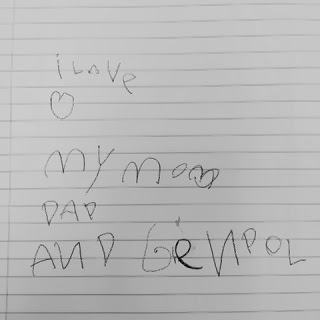 i LOVe
My Mom
DAD
AND GENPOL